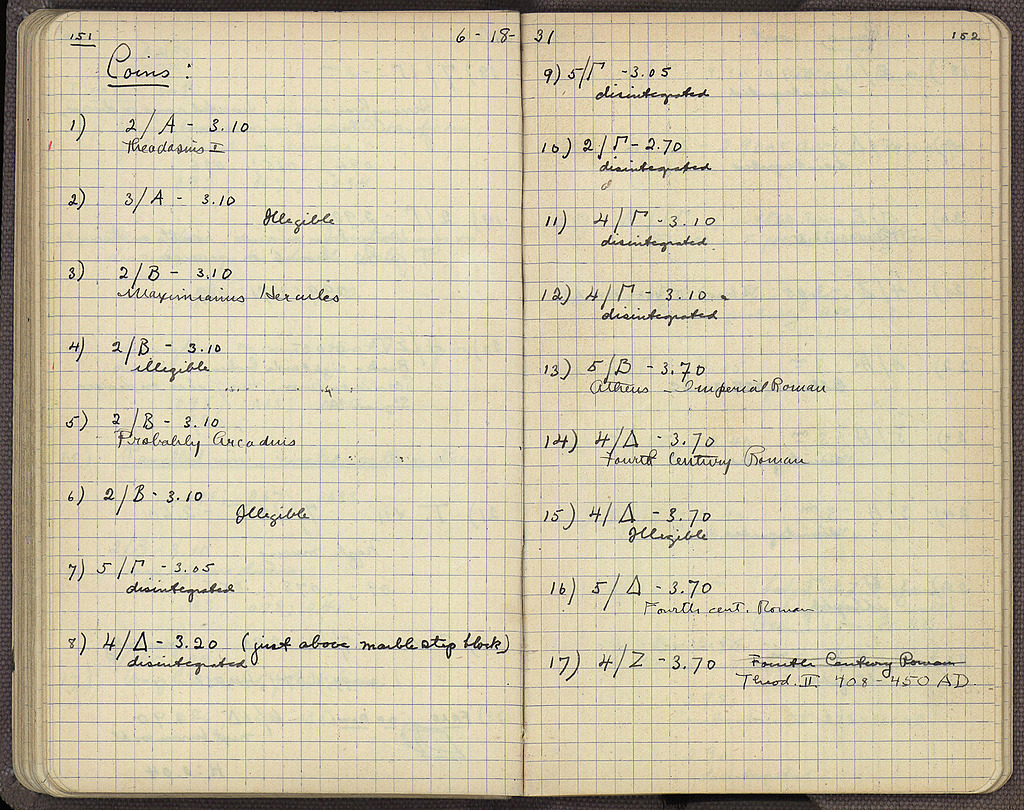 151
6-18-
Coins :
1) 2/A - 3.10
Theodosius I
2) 3/A - 3.10
Illegible
3) 2/B - 3.10
Maximianus Hercules
4) 2/B - 3.10
illegible
5) 2/B - 3.10
Probably Arcadius
6) 2/B - 3.10
Illegible
7) 5/Γ - 3.05
disintegrated
8) 4/Δ - 3.20 (just above marble step block)
disintegrated
31
152
9) 5/Γ - 3.05
disintegrated
10) 2/Γ - 2.70
disintegrated
11) 4/Γ - 3.10
disintegrated
12) 4/Γ - 3.10
disintegrated
13) 5/B - 3.70
Athens - Imperial Roman
14) 4/Δ - 3.70
Fourth Century Roman
15) 4/Δ - 3.70
Illegible
16) 5/Δ - 3.70
Fourth cent. Roman
17) 4/Z - 3.70 Fourth Century Roman
Theod. II 408-450 AD